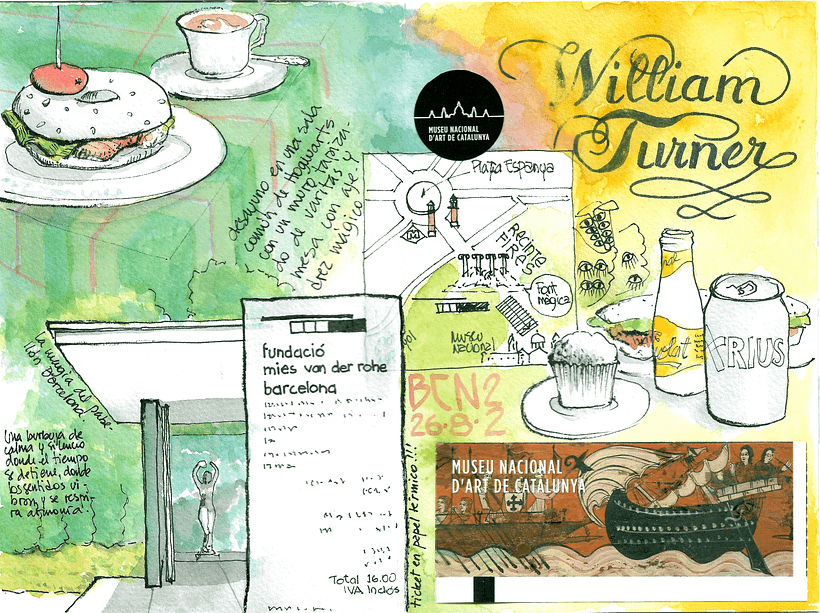 William
Turner
MUSEU NACIONAL
D'ART DE CATALUNYA
desayuno en una sala
común de Hogwarts
con un muro tapiza-
do de varitas y
mesa con aje-
drez mágico
Plaça Espanya
RECINTE
FIRES
Font
màgica
MUSEU
NACIONAL
la magia del pabe-
llón Barcelona.
Una burbuja de
calma y silencio
donde el tiempo
se detiene, donde
los sentidos vi-
bran y se respi-
ra armonía.
fundació
mies van der rohe
barcelona
Total 16.00
IVA Inclòs
ticket en papel térmico!!!
BCN2
26.8.2
FRIUS
MUSEU NACIONAL
D'ART DE CATALUNYA